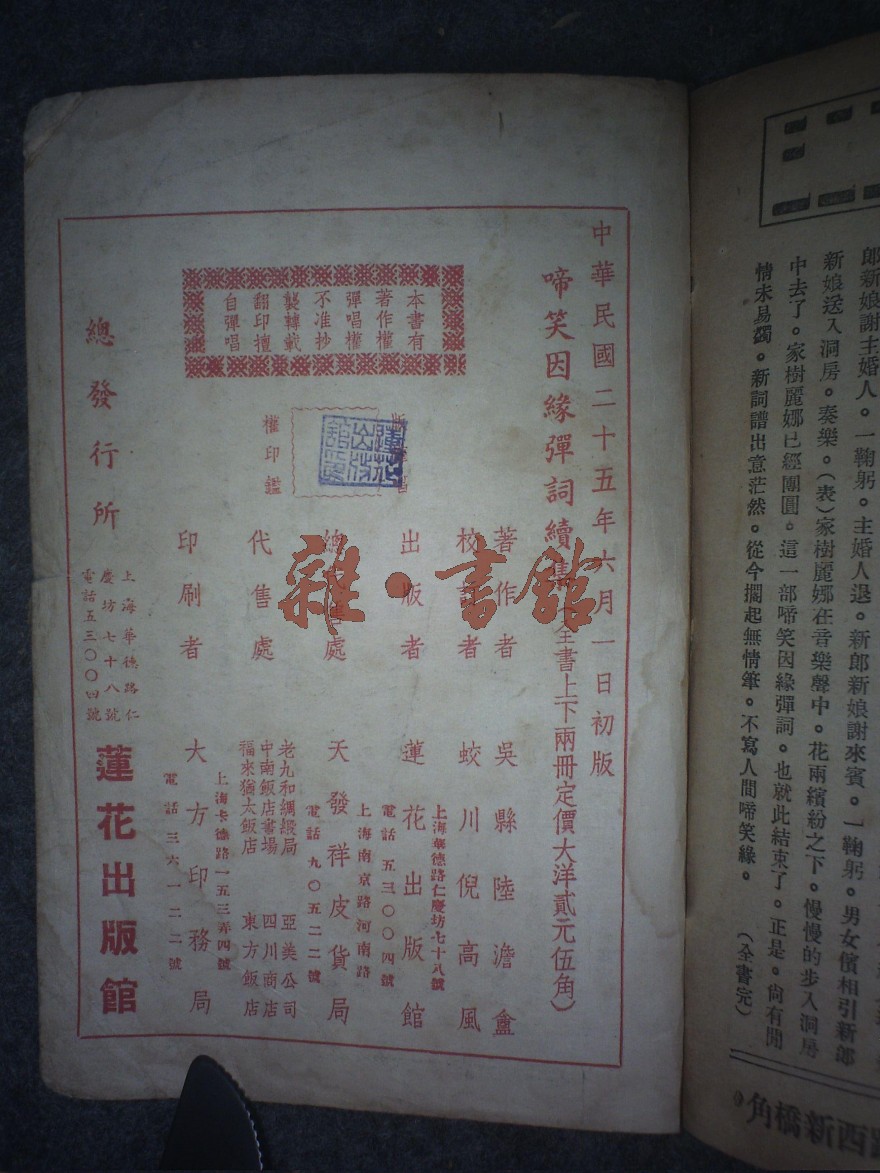 郎新娘謝主婚人。一鞠躬。主婚人退。新郎新娘謝來賓。一鞠躬。男女儐相引新郎
新娘送入洞房。奏樂。(表)家樹麗娜在音樂聲中。花雨繽紛之下。慢慢的步入洞房
中去了。家樹麗娜已經團圓。這一部啼笑因緣彈詞。也就此結束了。正是。尙有閒
情未易蠲。新詞譜出意茫然。從今擱起無情筆。不寫人間啼笑緣。 (全書完)
西新橋角
中華民國二十五年六月一日初版
啼笑因緣彈詞續集 全書上下兩冊定價大洋貳元伍角)
本書有
著作權
彈唱權
不准抄
襲轉載
翻印擅
自彈唱
權印鑑
蓮花
出版
館
著作者 吳縣陸澹盦
校 者 蛟川倪高風
出版者 蓮花出版館
上海華德路仁慶坊七十八號
電話五三〇〇四號
總 售處 天發祥皮貨局
上海南京路河南路
電話九〇五二二號
代售處
老九和綢緞局 亞美公司
中南飯店書場 四川商店
福來猶太飯店 東方飯店
印刷者 大方印務局
上海卡德路一五三弄四號
電話三六一二二號
總發行所
上海華德路仁
慶坊七十八號
電話五三〇〇四號
蓮花出版館
雜·書館